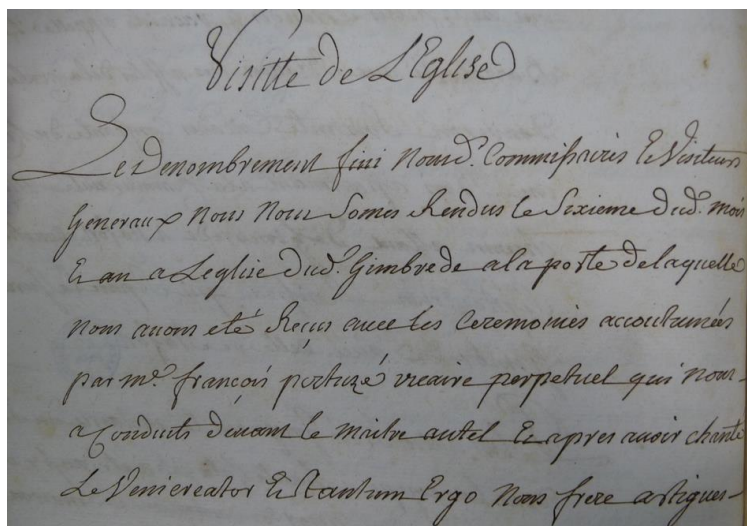 Visitte de L'Eglise
Le denombrement fini Nousd. Commissaires Et Visiteurs
Generaux Nous Nous Somes Rendus le Sixieme dud. mois
Et an a Leglise dud. Gimbrede a la porte de laquelle
Nous avons eté Reçus avec les Ceremonies accoutumées
par me. françois vicaire perpetuel qui Nous
a Conduits devant le maitre autel Et apres avoir chanté
Le Veni creator Et Tantum Ergo Nous frere artigues